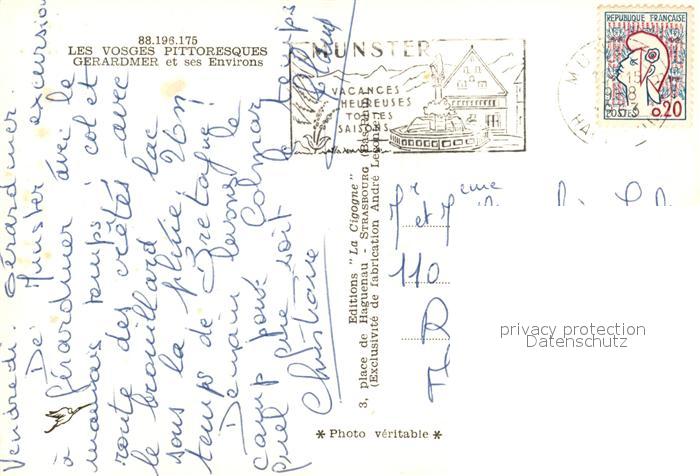 88.196.175
LES VOSGES PITTORESQUES
GERARDMER et ses Environs
MUNSTER
VACANCES
HEUREUSES
TOUTES
SAISONS
REPUBLIQUE FRANÇAISE
0.20
POSTES
Vendredi. Gérardmer.
De Munster, excursion
à Gérardmer avec le
mauvais temps; col et
route des crêtes avec
le brouillard, lac
sous la pluie. Un
temps de Bretagne!
Demain levons le
camp pour Colmar
quel que soit le temps
Christiane
Editions "La Cigogne"
3, place de Haguenau - STRASBOURG (Bas-Rhin)
(Exclusivité de fabrication André Leconte)
Mr et Mme
110
privacy protection
Datenschutz
* Photo véritable *